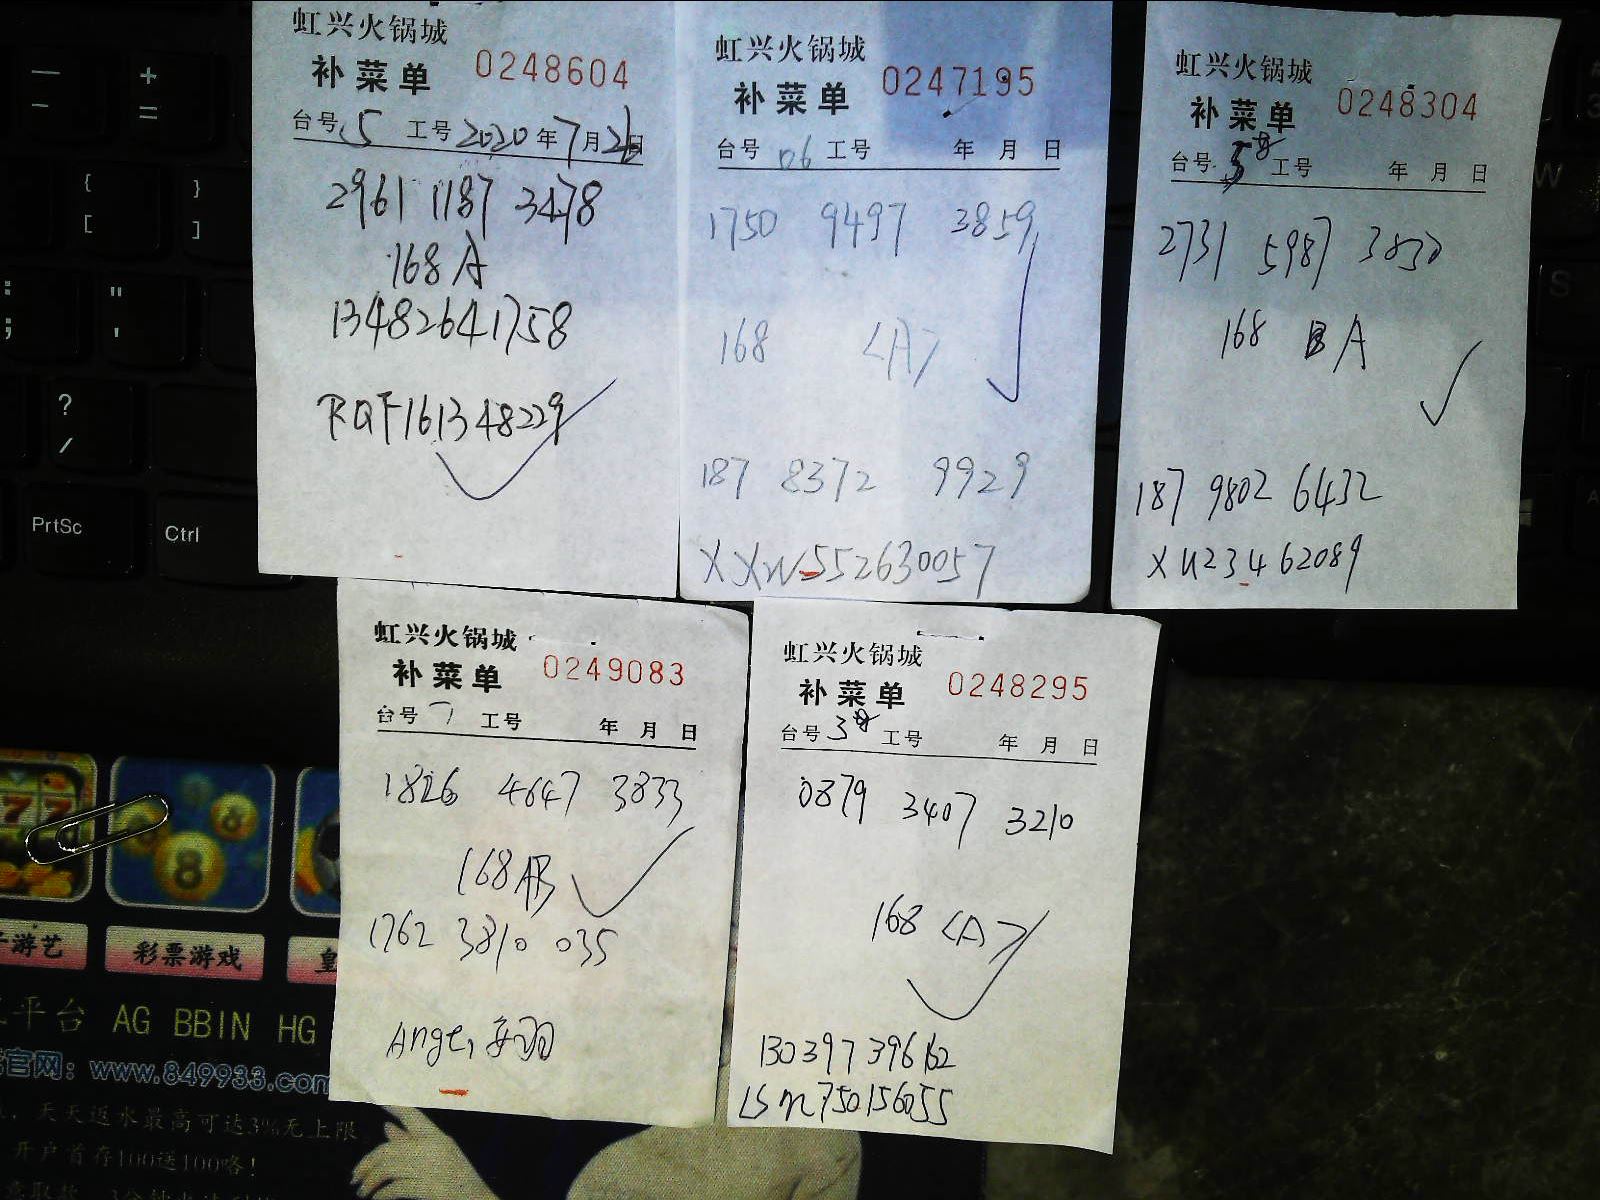 虹兴火锅城
补菜单 0248604
台号 5 工号 2020年7月26日
2961 1187 3478
168 A
13482641758
RQF161348229
虹兴火锅城
补菜单 0247195
台号 06 工号 年 月 日
1750 9497 3859
168 <A>
187 8372 9929
XXW552630057
虹兴火锅城
补菜单 0248304
台号 工号 年 月 日
2731 5987 3830
168 A
187 9802 6432
XU23462089
虹兴火锅城
补菜单 0249083
台号 7 工号 年 月 日
1826 4647 3833
168 AB
1762 3810 035
虹兴火锅城
补菜单 0248295
台号 3 工号 年 月 日
0879 3407 3210
168 <A>
13039739662
LSM750156055
PrtSc
Ctrl
游艺
彩票游戏
皇
平台 AG BBIN HG
官网：www.849933.com
天天返水最高可达3%无上限
开户首存100送100咯！